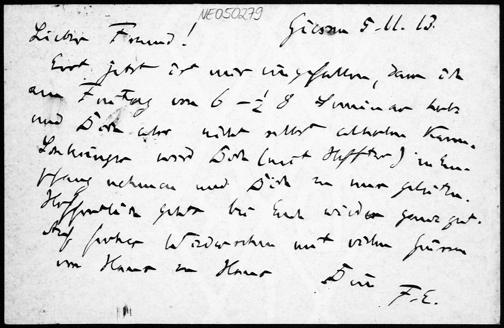 NE050279
Giessen 5.11.13.
Lieber Freund!
Erst jetzt ist mir eingefallen, dass ich
am Freitag von 6 – ½ 8 Seminar habe
und Dich also nicht selbst abholen kann.
wird Dich (mit Hoffter) in Em-
pfang nehmen und Dich zu mir geleiten.
Hoffentlich geht's bei Euch wieder ganz gut.
Auf frohes Wiedersehen mit vielen Grüssen
von Haus zu Haus Dein
F. E.